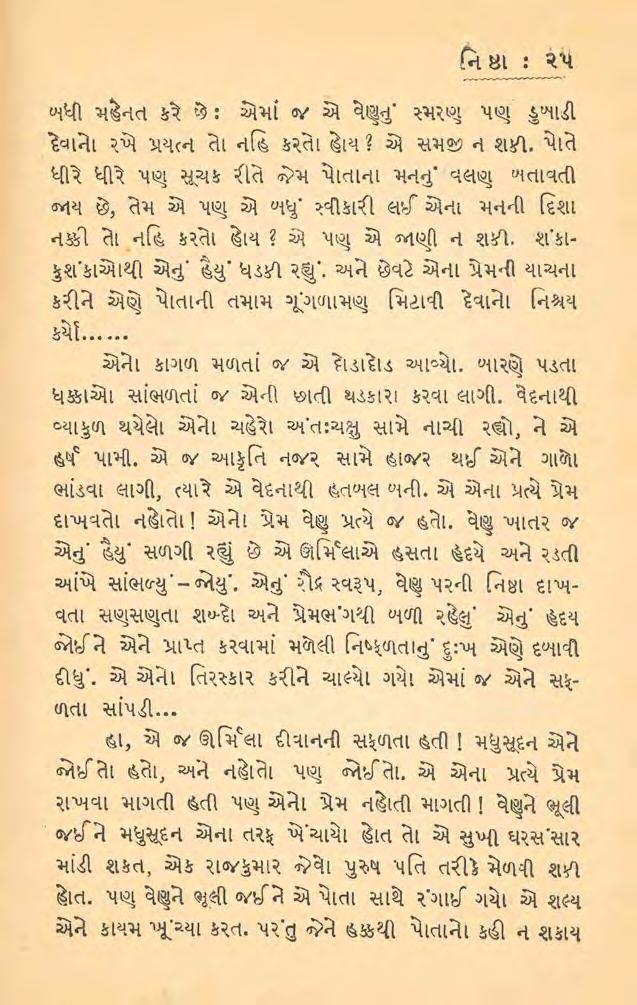 નિષ્ઠા : ૨૫
બધી મહેનત કરે છે : એમાં જ એ વેણુનું સ્મરણ પણ ડુબાડી
દેવાનો રખે પ્રયત્ન તો નહિ કરતો હોય ? એ સમજી ન શકી. પોતે
ધીરે ધીરે પણ સૂચક રીતે જેમ પોતાના મનનું વલણ બતાવતી
જાય છે, તેમ એ પણ એ બધું સ્વીકારી લઈ એના મનની દિશા
નક્કી તો નહિ કરતો હોય ? એ પણ એ જાણી ન શકી. શંકા-
કુશંકાઓથી એનું હૈયું ધડકી રહ્યું. અને છેવટે એના પ્રેમની યાચના
કરીને એણે પોતાની તમામ ગૂંગળામણ મિટાવી દેવાનો નિશ્ચય
કર્યો......
એનો કાગળ મળતાં જ એ દોડાદોડ આવ્યો. બારણે પડતા
ધક્કાઓ સાંભળતાં જ એની છાતી થડકારા કરવા લાગી. વેદનાથી
વ્યાકુળ થયેલો એનો ચહેરો અંતઃચક્ષુ સામે નાચી રહ્યો, ને એ
હર્ષ પામી. એ જ આકૃતિ નજર સામે હાજર થઈ એને ગાળો
ભાંડવા લાગી, ત્યારે એ વેદનાથી હતબલ બની. એ એના પ્રત્યે પ્રેમ
દાખવતો નહોતો ! એનો પ્રેમ વેણુ પ્રત્યે જ હતો. વેણુ ખાતર જ
એનું હૈયું સળગી રહ્યું છે એ ઊર્મિલાએ હસતા હૃદયે અને રડતી
આંખે સાંભળ્યું – જોયું. એનું રૌદ્ર સ્વરૂપ, વેણુ પરની નિષ્ઠા દાખ-
વતા સણસણતા શબ્દો અને પ્રેમભંગથી બળી રહેલું એનું હૃદય
જોઈને એને પ્રાપ્ત કરવામાં મળેલી નિષ્ફળતાનું દુઃખ એણે દબાવી
દીધું. એ એનો તિરસ્કાર કરીને ચાલ્યો ગયો એમાં જ એને સફ-
ળતા સાંપડી...
હા, એ જ ઊર્મિલા દીવાનની સફળતા હતી ! મધુસૂદન એને
જોઈતો હતો, અને નહોતો પણ જોઈતો. એ એના પ્રત્યે પ્રેમ
રાખવા માગતી હતી પણ એનો પ્રેમ નહોતી માગતી ! વેણુને ભૂલી
જઈને મધુસૂદન એના તરફ ખેંચાયો હોત તો એ સુખી ઘરસંસાર
માંડી શકત, એક રાજકુમાર જેવો પુરુષ પતિ તરીકે મેળવી શકી
હોત. પણ વેણુને ભૂલી જઈને એ પોતા સાથે રંગાઈ ગયો એ શલ્ય
એને કાયમ ખૂંચ્યા કરત. પરંતુ જેને હક્કથી પોતાનો કહી ન શકાય